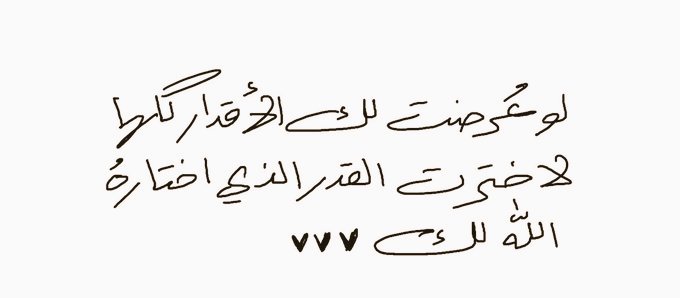 لو عُرضت لك الأقدار كلها
لاخترت القدر الذي اختارهُ
اللّٰه لك ♥♥♥